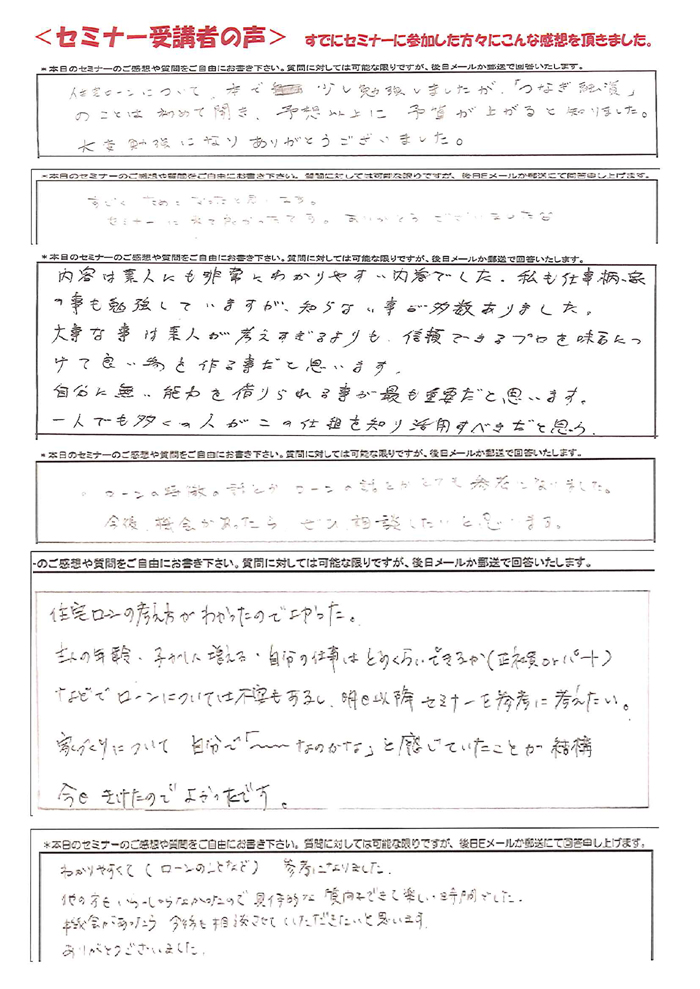 ＜セミナー受講者の声＞ すでにセミナーに参加した方々にこんな感想を頂きました。
＊本日のセミナーのご感想や質問をご自由にお書き下さい。質問に対しては可能な限りですが、後日メールか郵送で回答いたします。
住宅ローンについて、本で 少し勉強しましたが、「つなぎ融資」
のことは初めて聞き、予想以上に 予算が上がると知りました。
大変勉強になりありがとうございました。
＊本日のセミナーのご感想や質問をご自由にお書き下さい。質問に対しては可能な限りですが、後日Eメールか郵送にて回答申し上げます。
すごく ためになったと思います。
セミナーに来て良かったです。ありがとう ございました
＊本日のセミナーのご感想や質問をご自由にお書き下さい。質問に対しては可能な限りですが、後日メールか郵送で回答いたします。
内容は素人にも非常にわかりやすい内容でした。私も仕事柄、家
の事も勉強していますが、知らない事が多数ありました。
大事な事は素人が考えすぎるよりも、信頼できるプロを味方につ
けて良い物を作る事だと思います。
自分に無い能力を借りられる事が最も重要だと思います。
一人でも多くの人がこの仕組を知り活用すべきだと思う。
＊本日のセミナーのご感想や質問をご自由にお書き下さい。質問に対しては可能な限りですが、後日メールか郵送で回答いたします。
ローンの の話とか ローンの話とかとても参考になりました。
今後、機会があったら ぜひ、相談したいと思います。
のご感想や質問をご自由にお書き下さい。質問に対しては可能な限りですが、後日メールか郵送で回答いたします。
住宅ローンの考え方がわかったのでよかった。
主人の年齢・子がした増える・自分の仕事はどのくらいできるか(正社員orパート)
などでローンについては不安もあるし、明日以降セミナーを参考に考えたい。
家づくりについて 自分で「〜〜なのかな」と感じていたことが結構
今日 きけたのでよかったです。
＊本日のセミナーのご感想や質問をご自由にお書き下さい。質問に対しては可能な限りですが、後日Eメールか郵送にて回答申し上げます。
わかりやすくて(ローンのことなど) 参考になりました。
他の方もいらっしゃらなかったので具体的な 質問もできて楽しい時間でした。
機会があったら 今後も相談させていただきたいと思います。
ありがとうございました。